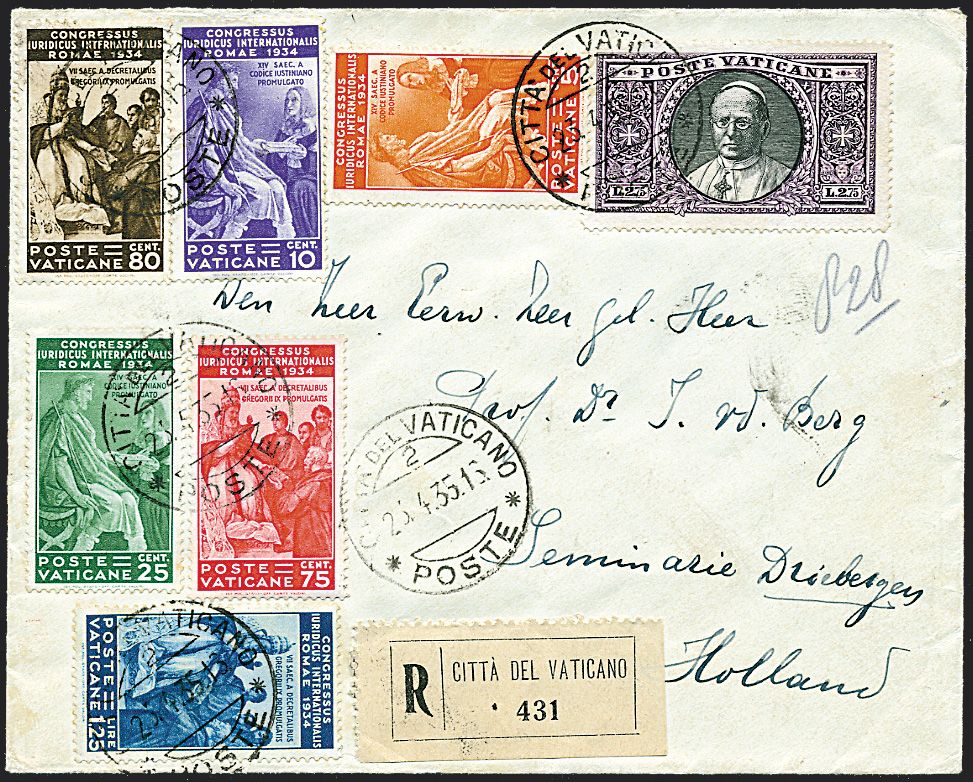 CONGRESSUS
IURIDICUS INTERNATIONALIS
ROMAE 1934
VII SAEC. A DECRETALIBUS
GREGORII IX PROMULGATIS
POSTE
VATICANE
CENT.
80
CONGRESSUS
IURIDICUS INTERNATIONALIS
ROMAE 1934
XIV SAEC. A
CODICE IUSTINIANO
PROMULGATO
POSTE
VATICANE
CENT.
10
POSTE
CONGRESSUS
IURIDICUS INTERNATIONALIS
ROMAE 1934
XIV SAEC. A
CODICE IUSTINIANO
PROMULGATO
POSTE
VATICANE
CITTÀ DEL VATIC
2
POSTE VATICANE
L.2.75
L.2.75
828
Den Heer Eerw. Zeer gel. Heer
Prof. Dr. J. v.d. Berg
Seminarie Driebergen
Holland
CONGRESSUS
IURIDICUS INTERNATIONALIS
ROMAE 1934
XIV SAEC. A
CODICE IUSTINIANO
PROMULGATO
POSTE
VATICANE
CENT.
25
CONGRESSUS
IURIDICUS INTERNATIONALIS
ROMAE 1934
VII SAEC. A DECRETALIBUS
GREGORII IX PROMULGATIS
POSTE
VATICANE
CENT.
75
POSTE
CITTÀ DEL VATICANO
2
23.4.35.16
* POSTE *
CONGRESSUS
IURIDICUS INTERNATIONALIS
ROMAE 1934
VII SAEC. A DECRETALIBUS
GREGORII IX PROMULGATIS
POSTE
VATICANE
LIRE
1,25
VATICANO
2
POSTE
R
CITTÀ DEL VATICANO
431